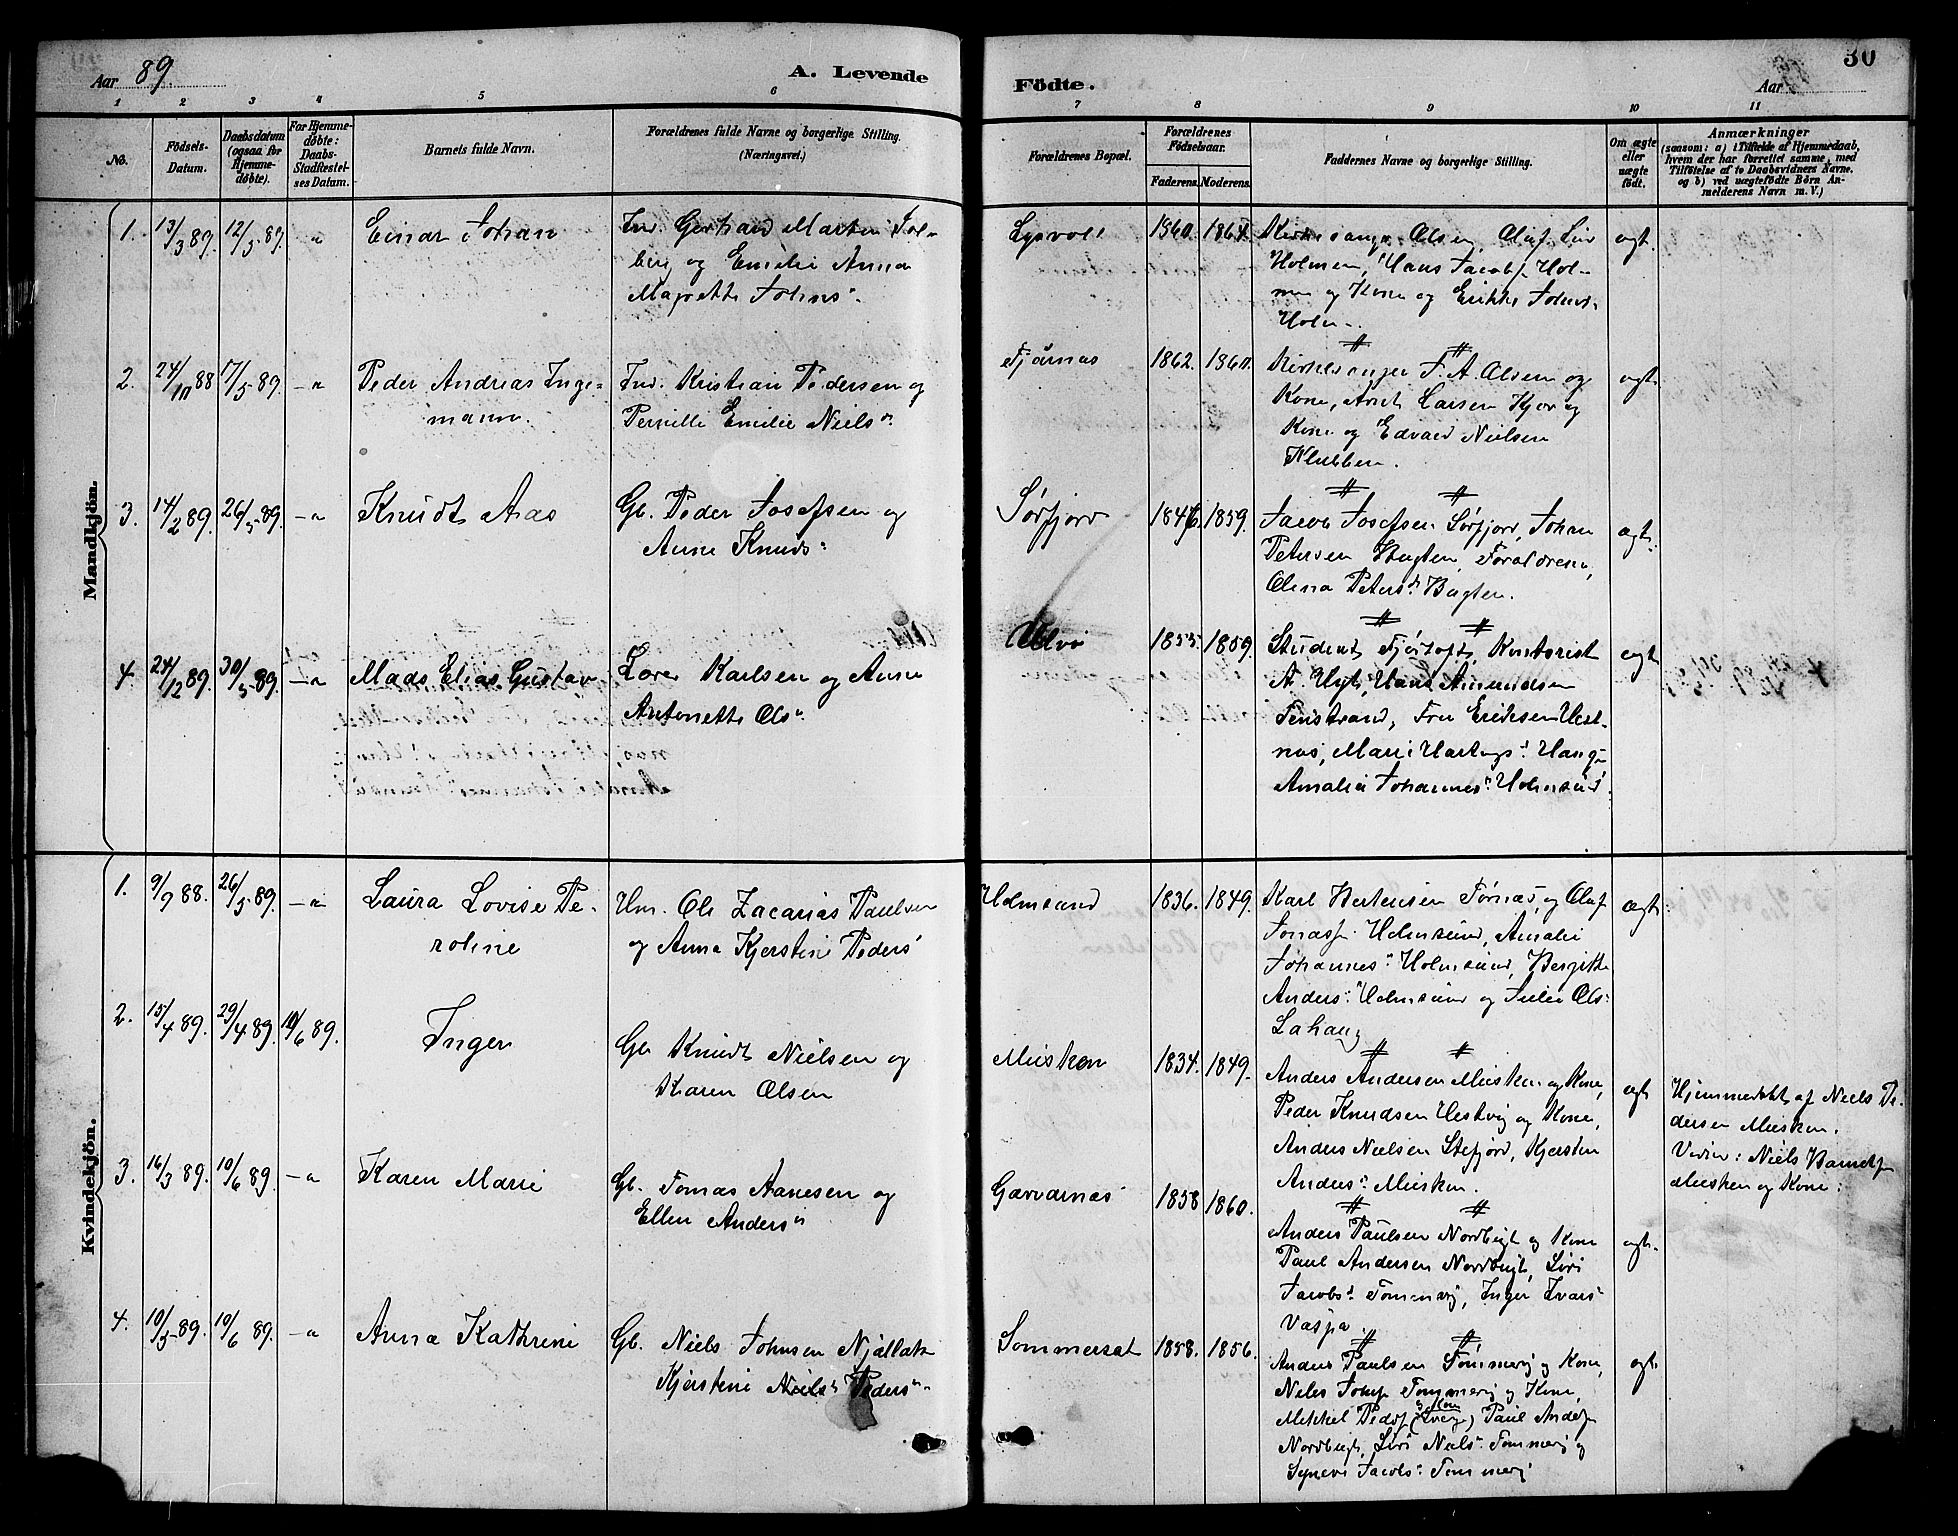 Aar 89.
A. Levende
Födte.
Aar
30
1 2 3 4 5 6 7 8 9 10 11
No.
Födsels-
Datum.
Daabsdatum
(ogsaa for
Hjemme-
døbte).
For Hjemme-
døbte:
Daabs-
Stadfæstel-
ses Datum.
Barnets fulde Navn.
Forældrenes fulde Navne og borgerlige Stilling.
(Næringsvei.)
Forældrenes Bopæl.
Forældrenes
Födselsaar.
Faderens. Moderens.
Faddernes Navne og borgerlige Stilling.
Om ægte
eller
uægte
födt.
Anmærkninger
(saasom: a) i Tilfælde af Hjemmedaab,
hvem der har forrettet samme, med
Tilföielse af to Daabsvidners Navne,
og b) ved uægtefödte Börn An-
melderens Navn m. V.)
Mandkjön.
1. 13/3 89. 12/5 89. Einar Johan
Ind. Gerhard Martin Sol-
berg og Emelie Anna
Magrette Johns
1860. 1864.
Kirkesanger Olsen, Oluf
Holmen, Hans Jacobs. Hol-
men og Kone og Erikke Johns
Holm
ægt.
2. 24/10 88 17/5 89. Peder Andreas Inge-
mann.
Ind. Kristian Pedersen og
Pernille Emelie Niels
Fjärnas 1862. 1860.
Kirkesanger J. A. Olsen og
Kone, Larsen Kjær og
Kone og Edvard Nielsen
Klubben.
ægt.
3. 14/2 89. 26/5 89. Knudt Aas
Gb. Peder Josefsen og
Anne Knuds
Sørfjord 1846. 1859.
Jacob Josefsen Sørfjord, Johan
Petersen Bugten, Forældrene,
Olina Peters Bugten.
ægt.
4. 24/12 89. 30/5 89. Mads Elias Gustav
Karlsen og Anne
Antonette Ols
Ulvö 1855. 1859.
Student Fjörtoft, Kontorist
A. Hans Amundsen
Finstrand, Fru Eriksen Vest-
nas, Marie
Amalia Johannes Holmsund.
ægt
Kvindekjön.
1. 9/9 88. 26/5 89. Laura Lovise Pe-
roline
Hm. Ole Zacarias Paulsen
og Anna Kjerstine Peders
Holmsund 1836. 1849.
Karl Bertensen Tørnæs, og Oluf
Jonass. Holmsund, Amalie
Johannes Holmsund, Bergitte
Anders Holmsund og Julie Ols
ægt
2. 15/4 89. 29/4 89. 10/6 89. Inger
Gb. Knudt Nielsen og
Karen Olsen
Musken 1834. 1849.
Anders Andersen Musken og Kone,
Peder Knudsen Vestvig og Kone,
Anders Nielsen Stefjord, Kjersten
Anders Musken.
ægt
Hjemmedøbt af Niels Pe-
dersen Musken.
Vidner: Niels
Musken og Kone.
3. 16/3 89. 10/6 89. Karen Marie
Gb. Tomas Aanesen og
Ellen Anders
1858 1860.
Anders Paulsen Nordbugt og Kone
Paul Andersen Nordbugt, Siri
Jacobs Tommervig, Inger Ivars
Vaspa.
ægt.
4. 10/5 89. 10/6 89. Anna Kathrine
Gb. Niels Johnsen
Kjerstine Niels Peders
Sommersæt 1858. 1856.
Anders Paulsen Tömmervig og Kone,
Niels Tommervig og Kone,
Mikkel Peders. Paul Anders.
Nordbugt, Siri Niels Tommervig og
Synevi Jacobs Tommervig
ægt